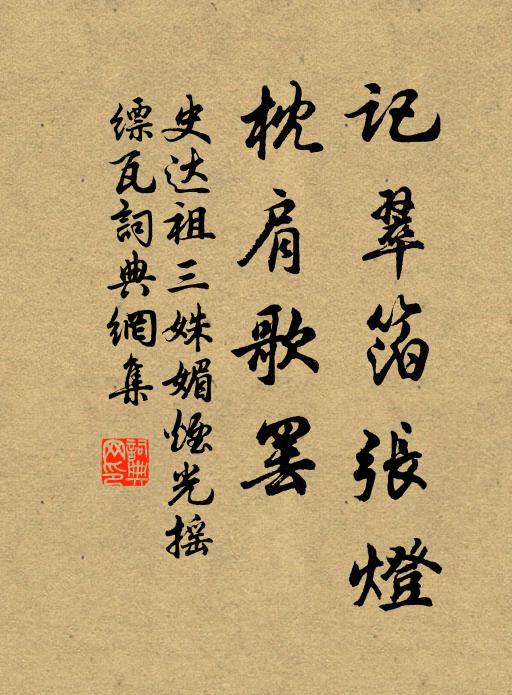 记翠箔張燈
枕肩歌罢
史达祖三姝媚煙光摇
缥瓦詞典網集
詞典网印